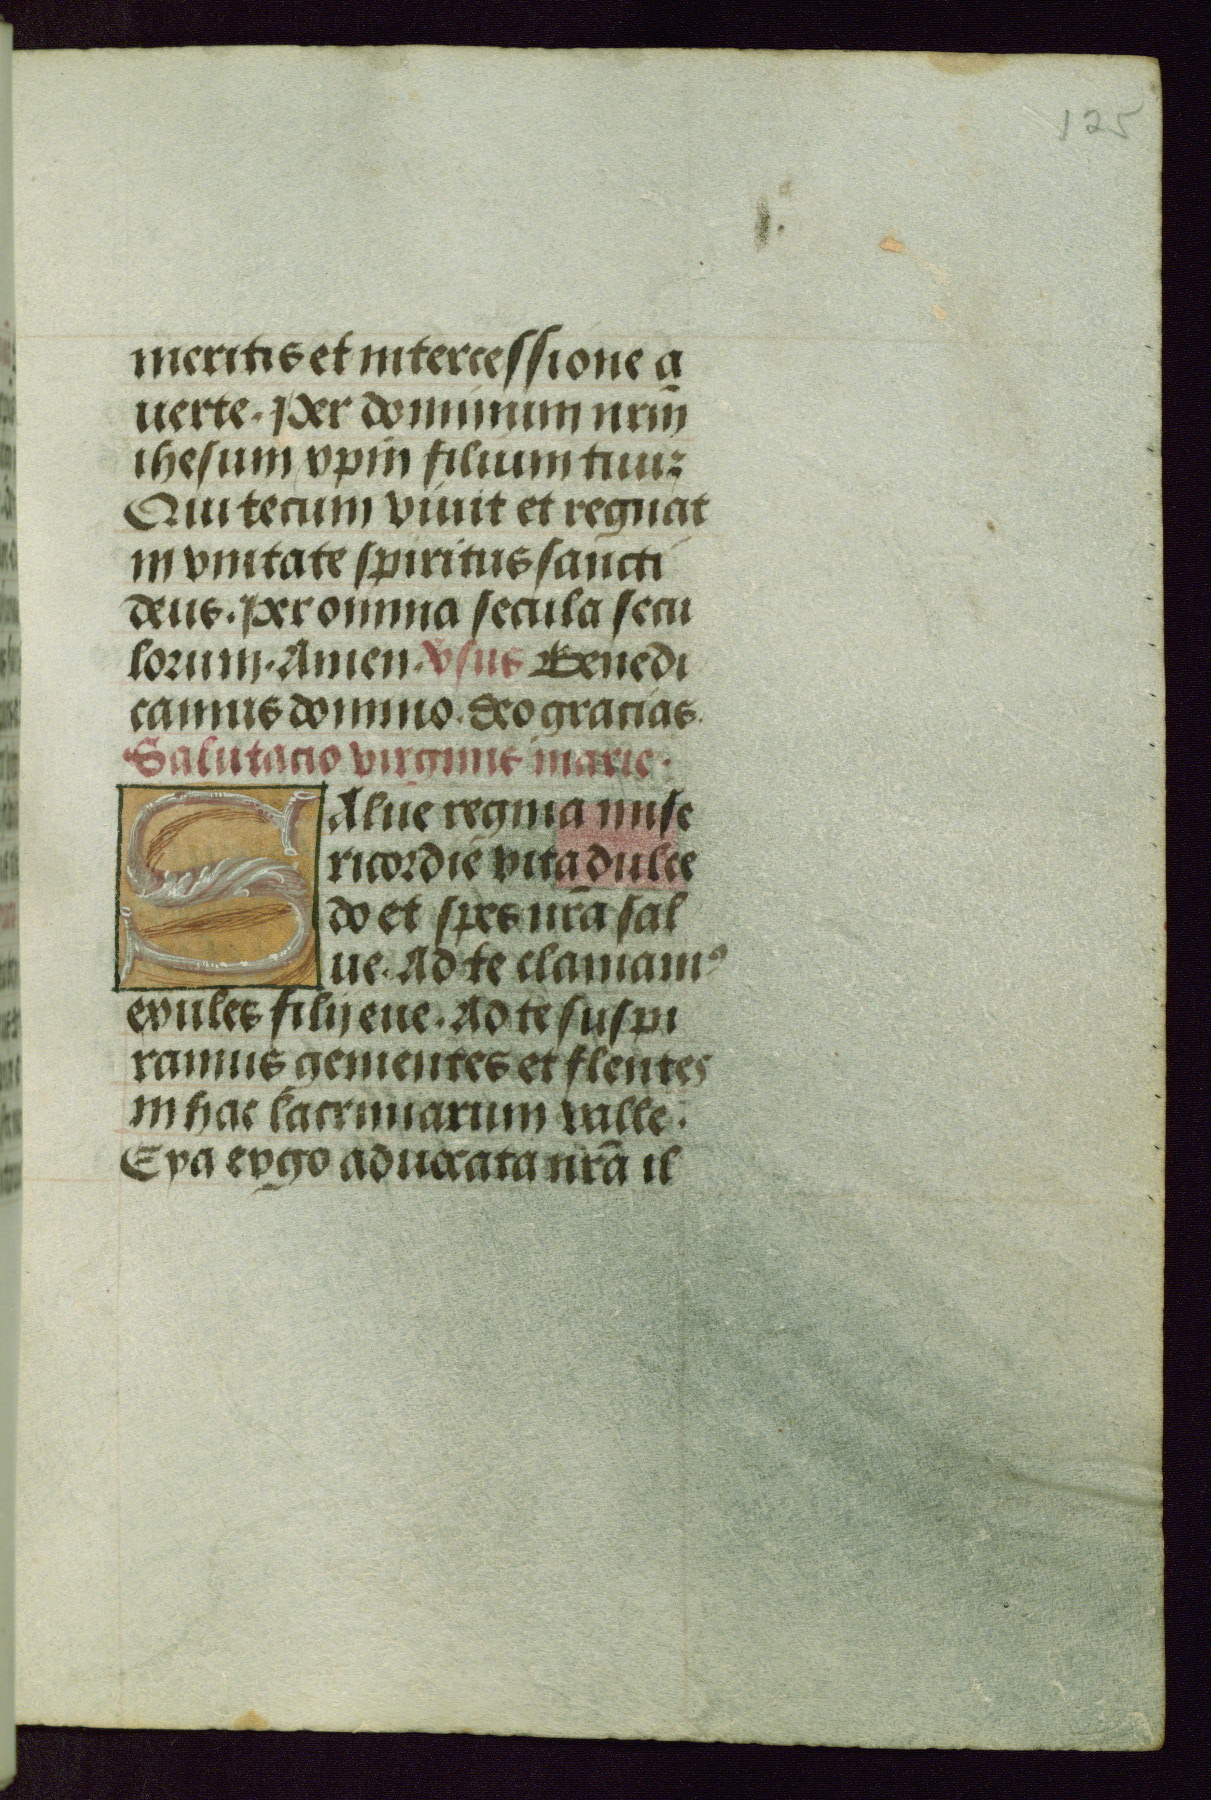 125
meritis et intercessione a
uerte. Per dominum nr̄m
ihesum xp̄m filium tuuz
Qui tecum viuit et regnat
in vnitate spiritus sancti
deus. Per omnia secula secu
lorum. Amen. vsus Benedi
camus domino. Deo gracias.
Salutacio virginis marie.
SAlue regina mise
ricordie vita dulce
do et spes nr̄a sal
ue. Ad te clamamꝰ
exules filij eue. Ad te suspi
ramus gementes et flentes
in hac lacrimarum valle.
Eya ergo aduocata nr̄a il